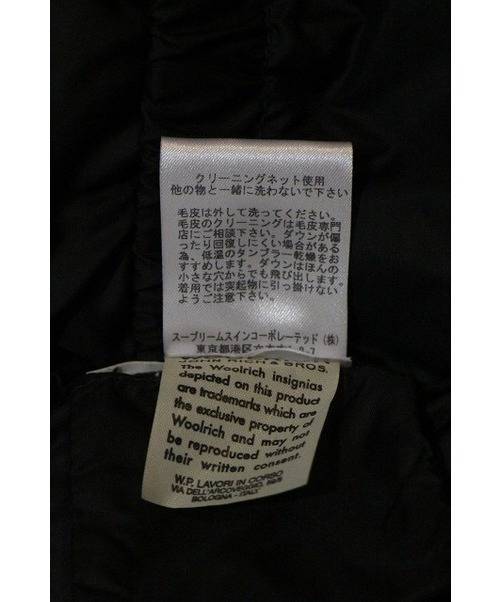 クリーニングネット使用
他の物と一緒に洗わないで下さい
毛皮は外して洗ってください。
毛皮のクリーニングは毛皮専門
店にご相談下さい。ダウンが偏
ったり回復しにくい場合がある
為、低温のタンブラー乾燥をお
すすめします。ダウンはほんの
小さな穴からでも飛び出します。
着用では突起物に引っ掛けない
ようご注意下さい。
スープリームスインコーポレーテッド（株）
東京都港区
JOHN RICH & BROS.
the Woolrich insignias
depicted on this product
are trademarks which are
the exclusive property of
Woolrich and may not
be reproduced without
their written consent.
W.P. LAVORI IN CORSO
VIA DELL'ARCOVEGGIO, 59/5
BOLOGNA - ITALY